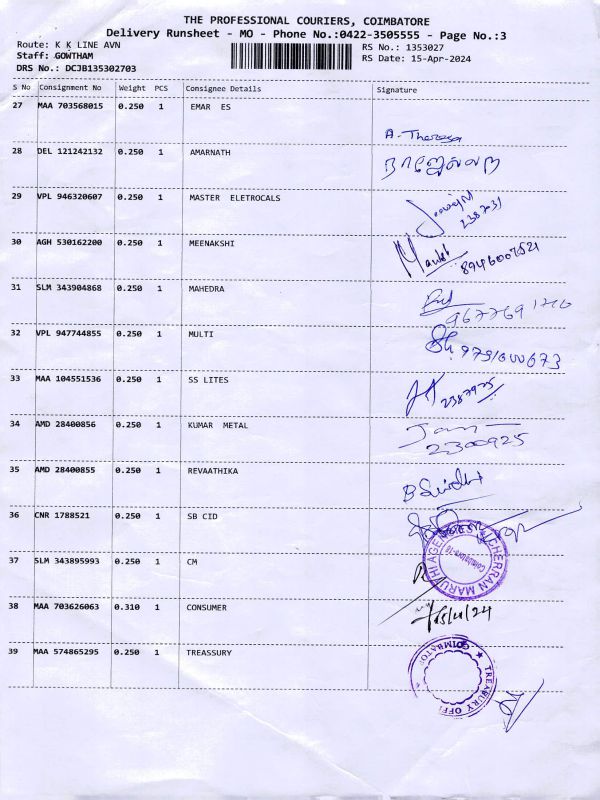 THE PROFESSIONAL COURIERS, COIMBATORE
Delivery Runsheet - MO - Phone No.:0422-3505555 - Page No.:3
Route: K K LINE AVN RS No.: 1353027
Staff: GOWTHAM RS Date: 15-Apr-2024
DRS No.: DCJB135302703
S No Consignment No Weight PCS Consignee Details Signature
27 MAA 703568015 0.250 1 EMAR ES
A. Theresa
28 DEL 121242132 0.250 1 AMARNATH
29 VPL 946320607 0.250 1 MASTER ELETROCALS
2387031
30 AGH 530162200 0.250 1 MEENAKSHI
31 SLM 343904868 0.250 1 MAHEDRA
32 VPL 947744855 0.250 1 MULTI
33 MAA 104551536 0.250 1 SS LITES
2387975
34 AMD 28400856 0.250 1 KUMAR METAL
2300925
35 AMD 28400855 0.250 1 REVAATHIKA
36 CNR 1788521 0.250 1 SB CID
37 SLM 343895993 0.250 1 CM
CHERRAN MARUTHI AGE
Coimbatore-18
38 MAA 703626063 0.310 1 CONSUMER
39 MAA 574865295 0.250 1 TREASSURY
TREASURY OFF
COIMBATO